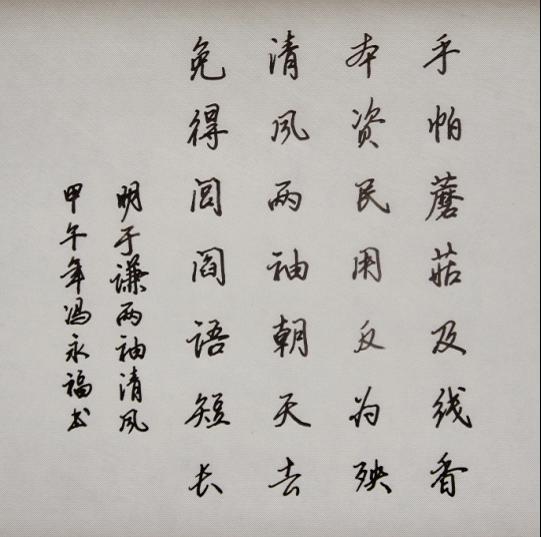 手帕蘑菇及线香
本资民用反为殃
清风两袖朝天去
免得闾阎语短长
明于谦两袖清风
甲午年冯永福书